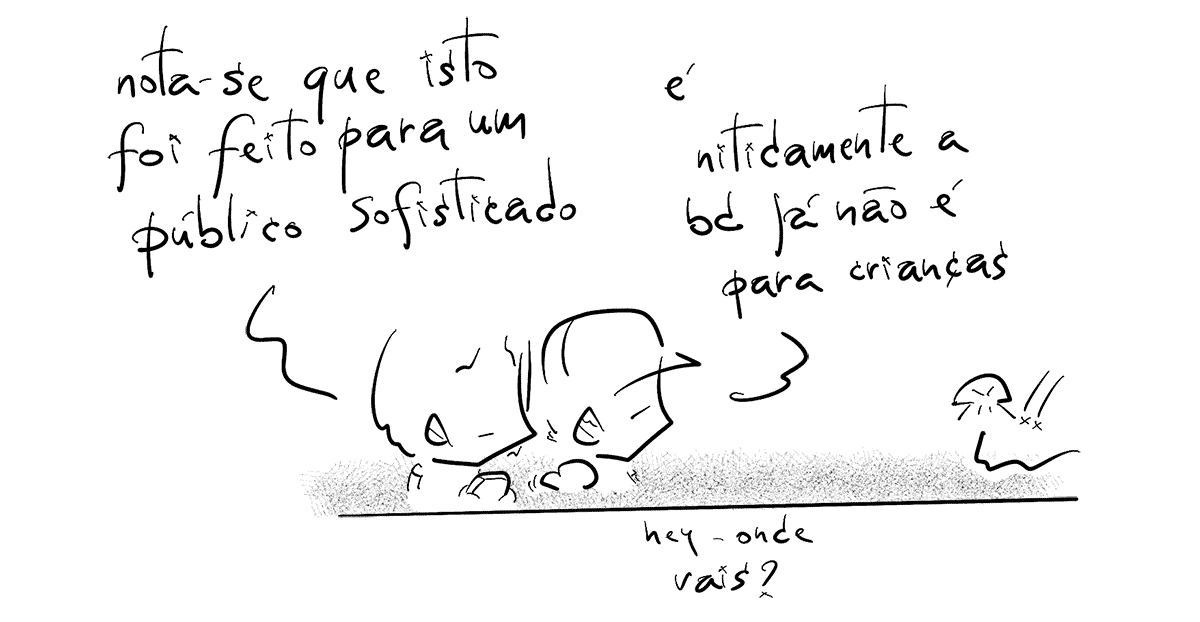 nota-se que isto
foi feito para um
público sofisticado
é
nitidamente a
bd já não é
para crianças
hey - onde
vais?